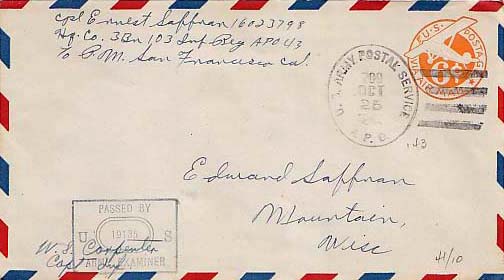 Cpl Ernest Saffran 16023798
Hq. Co. 3Bn 103 Inf Reg APO 43
℅ P.M. San Francisco Cal.
U.S. POSTAGE
6¢
VIA AIR MAIL
U.S. ARMY POSTAL SERVICE
700
OCT
25
A.P.O.
,43
Edward Saffran
Mountain,
Wisc
PASSED BY
U S
19135
ARMY EXAMINER
W. S. Carpenter
Capt Inf.
41/10